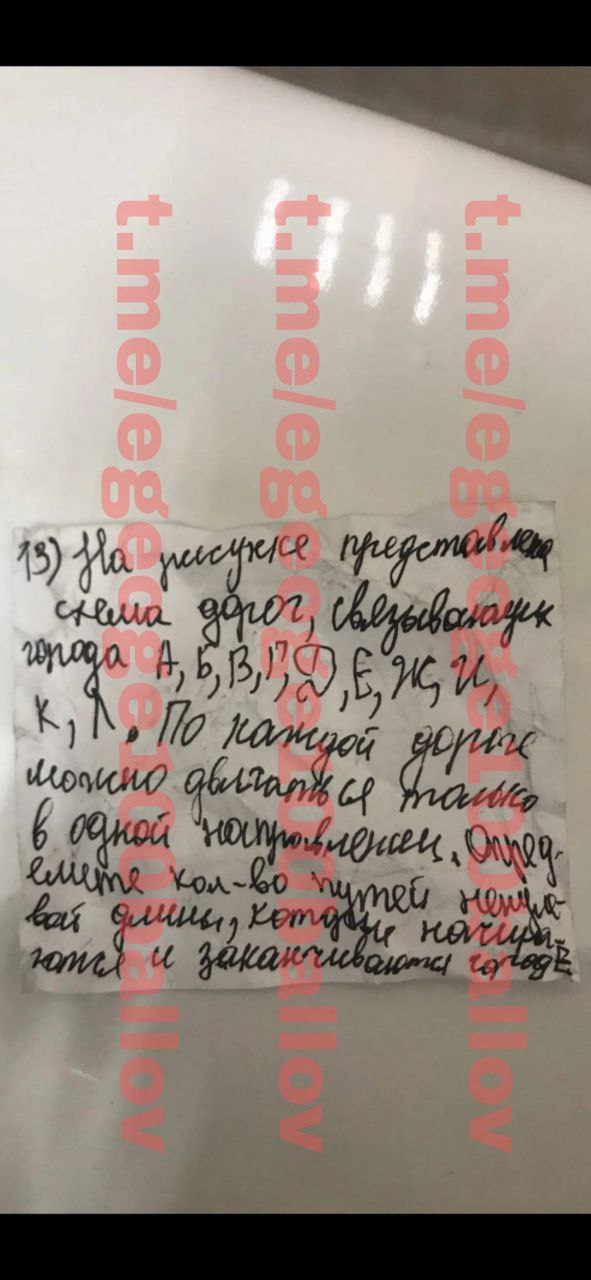 13) На рисунке представлена
схема дорог, связывающих
города А, Б, В, Г, Д, Е, Ж, И,
К, Л. По каждой дороге
можно двигаться только
в одной направлении. Опред-
елите кол-во путей ненуле-
вой длины, которые начина-
ются и заканчиваются город Е
t.me/egege100ballov
t.me/egege100ballov
t.me/egege100ballov